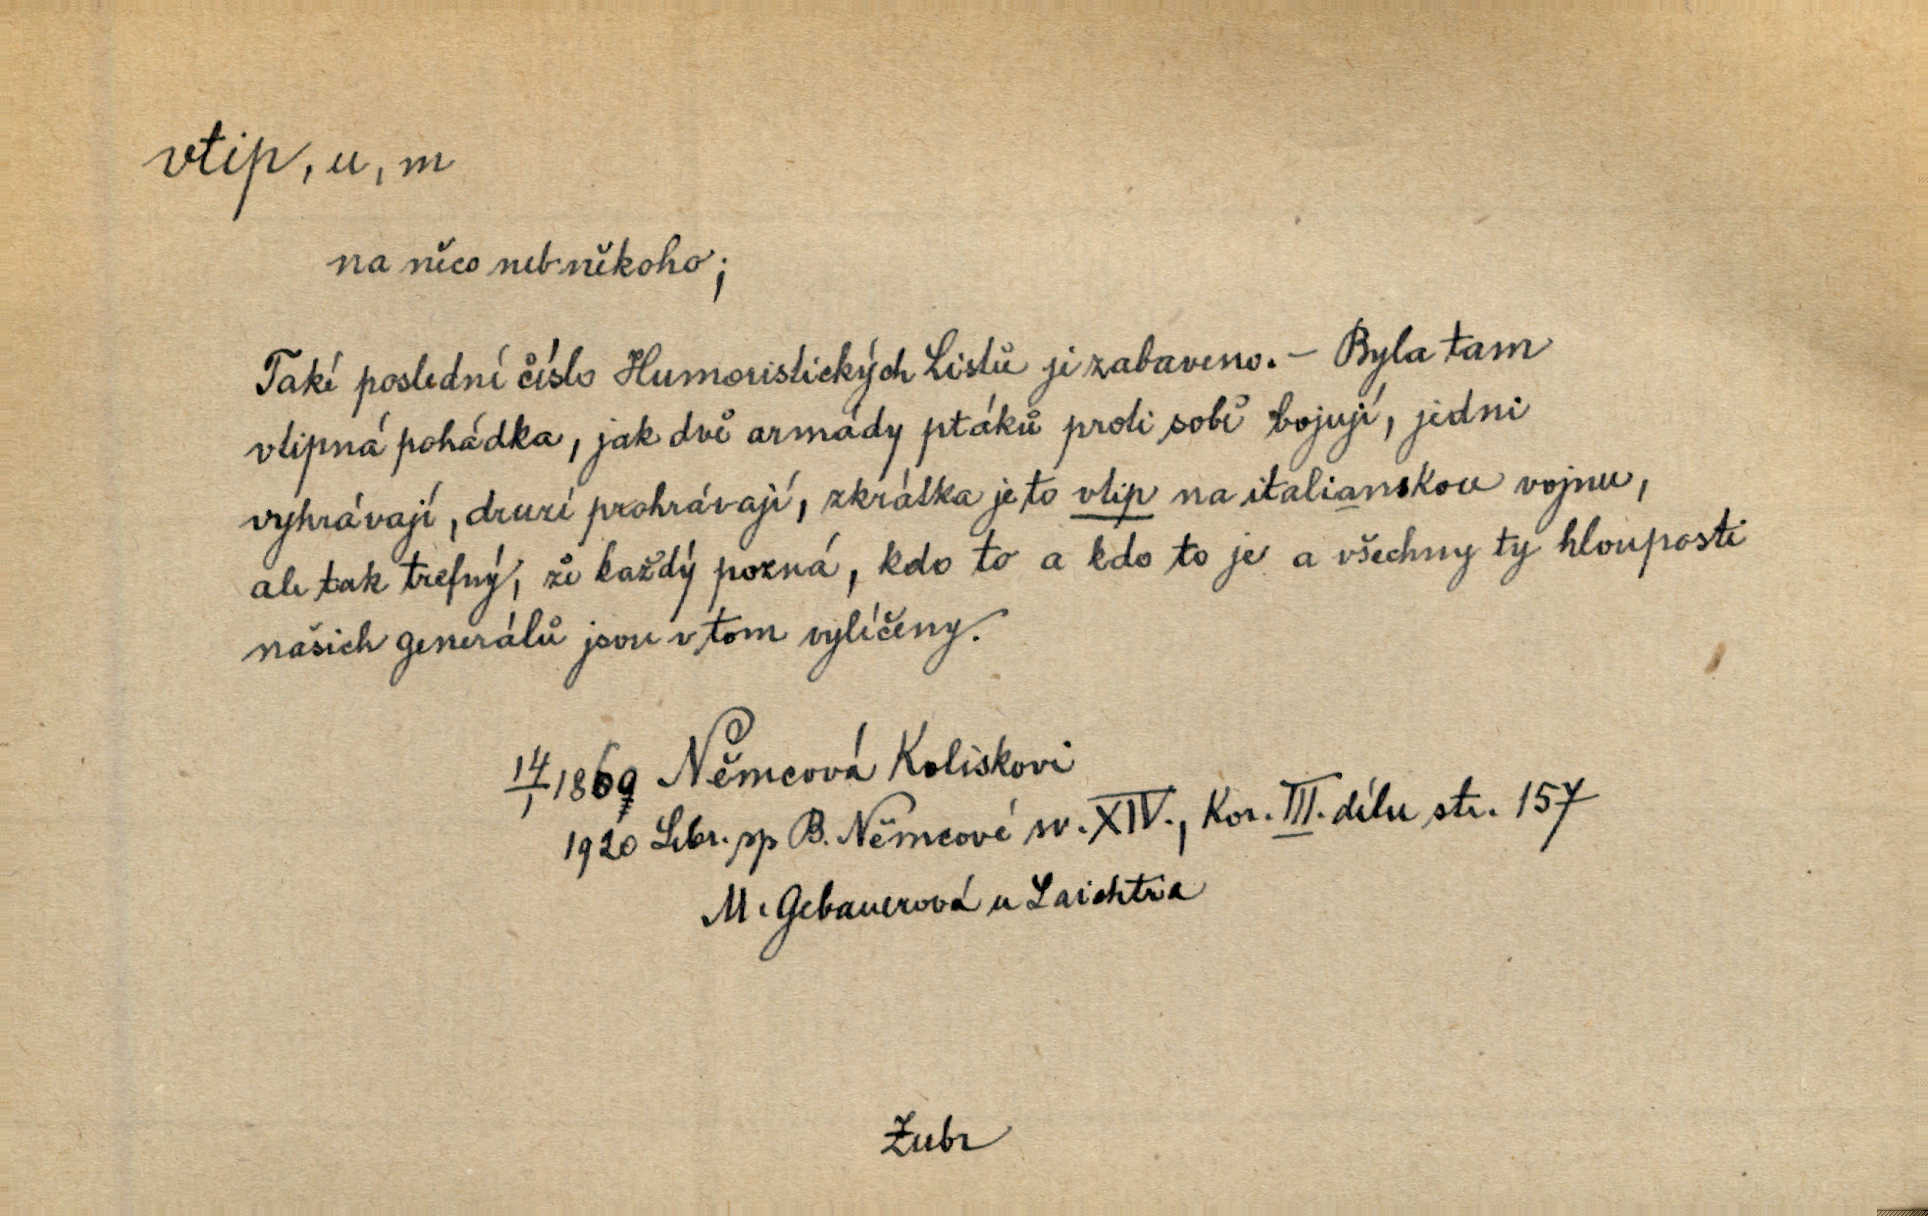 vtip, u, m
na něco neb někoho;
Také poslední číslo Humoristických Listů je zabaveno. – Byla tam
vtipná pohádka, jak dvě armády ptáků proti sobě bojují, jedni
vyhrávají, druzí prohrávají, zkrátka je to vtip na italianskou vojnu,
ale tak trefný, že každý pozná, kdo to a kdo to je a všechny ty hlouposti
našich generálů jsou v tom vylíčeny.
14/1 1860 Němcová Koliskovi
1920 Sebr. sp B. Němcové sv. XIV., Kor. III. dílu str. 157
M. Gebauerová u Laichtra
Zubr